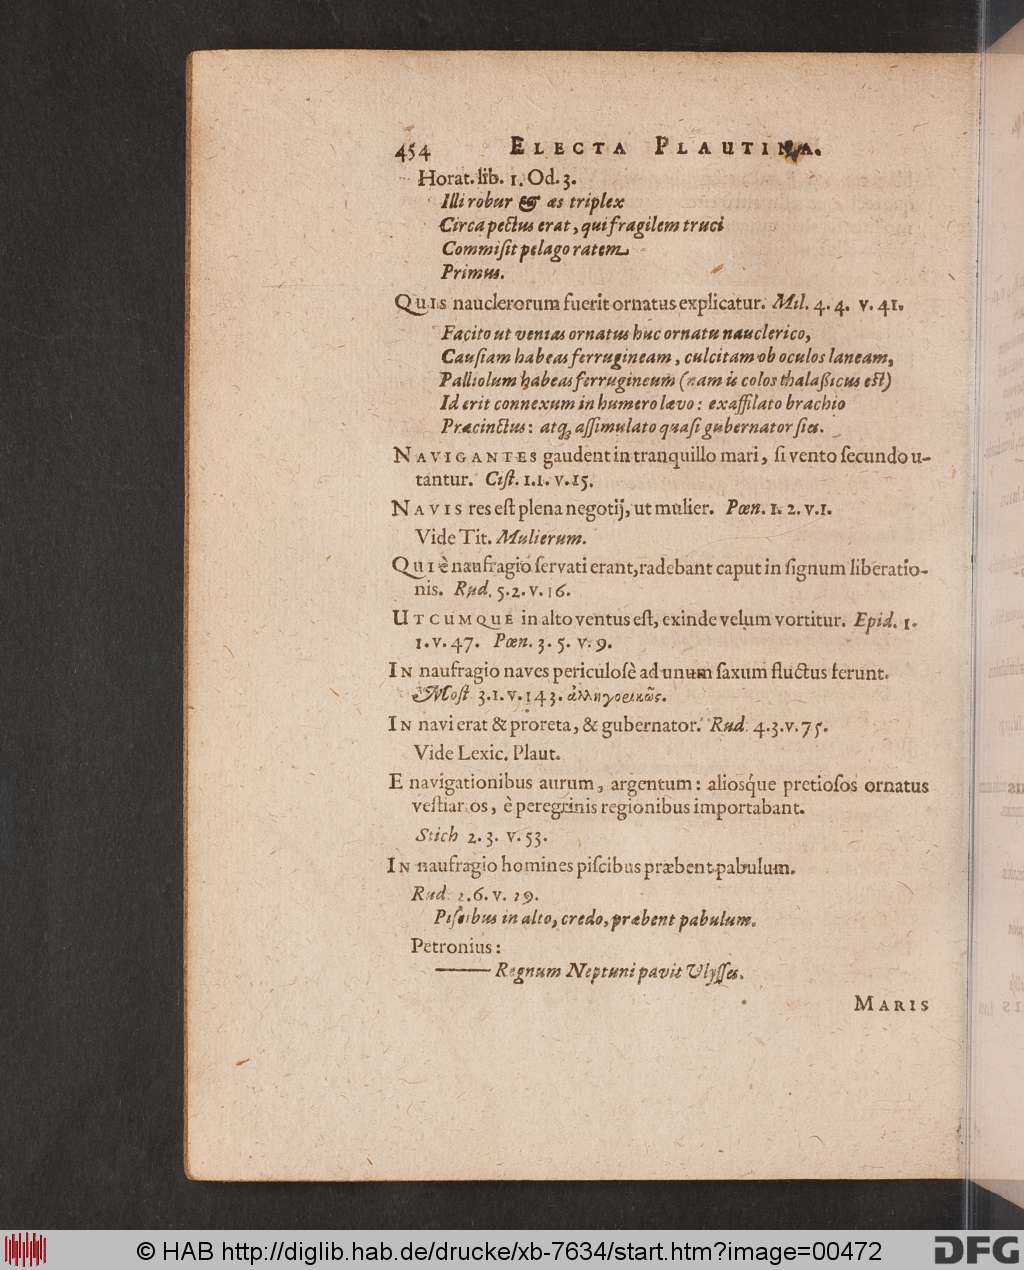 454 ELECTA PLAUTINA.
Horat. lib. 1. Od. 3.
Illi robur & æs triplex
Circa pectus erat, qui fragilem truci
Commiſit pelago ratem
Primus.
QUIS nauclerorum fuerit ornatus explicatur. Mil. 4. 4. v. 41.
Facito ut venias ornatus huc ornatu nauclerico,
Cauſiam habeas ferrugineam, culcitam ob oculos laneam,
Palliolum habeas ferrugineum (nam is colos thalaßicus eſt)
Id erit connexum in humero lævo: exaffilato brachio
Præcinctus: atq́; aſſimulato quaſi gubernator ſies.
NAVIGANTES gaudent in tranquillo mari, ſi vento ſecundo u-
tantur. Ciſt. 1.1. v.15.
NAVIS res eſt plena negotij, ut mulier. Pœn. 1. 2. v.1.
Vide Tit. Mulierum.
QUI è naufragio ſervati erant, radebant caput in ſignum liberatio-
nis. Rud. 5.2. v. 16.
UTCUMQUE in alto ventus eſt, exinde velum vortitur. Epid. 1.
1. v. 47. Pœn. 3. 5. v. 9.
IN naufragio naves periculoſè ad unum ſaxum fluctus ferunt.
Moſt. 3.1. v. 143. ἀλληγορικῶς.
IN navi erat & proreta, & gubernator. Rud. 4.3. v. 75.
Vide Lexic. Plaut.
E navigationibus aurum, argentum: aliosq́ue pretioſos ornatus
veſtiarios, è peregrinis regionibus importabant.
Stich 2. 3. v. 53.
IN naufragio homines piſcibus præbent pabulum.
Rud. 2.6. v. 29.
Piſcibus in alto, credo, præbent pabulum.
Petronius:
—— Regnum Neptuni pavit Ulyſſes.
MARIS
© HAB http://diglib.hab.de/drucke/xb-7634/start.htm?image=00472
DFG